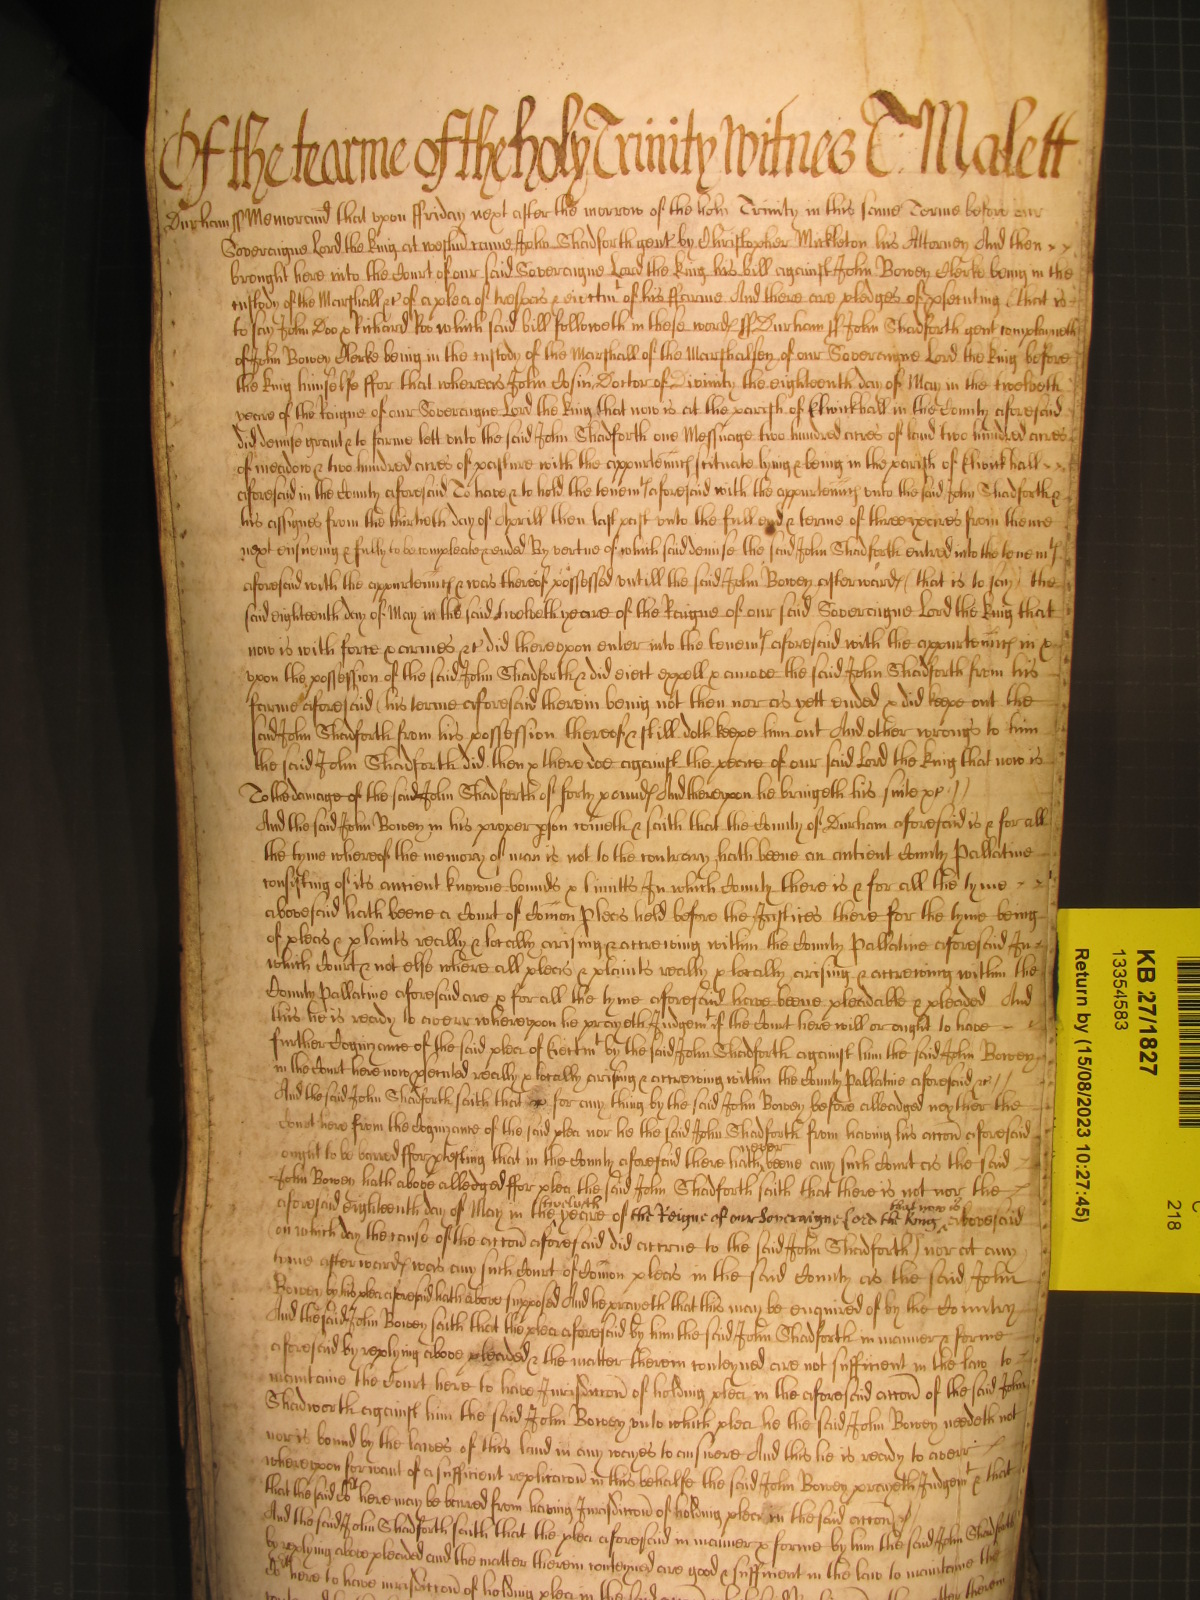 Of the tearme of the holy Trinity Witnes T: Malett
Durham ss Memorand that upon ffriday next after the morrow of the holy Trinity in this same Terme before our
Soveraigne Lord the King at Westm̃ came John Shadforth gent by Christopher Mickleton his Attorney And then
brought here into the Court of our said Soveraigne Lord the King his bill against John Bowey Clerke being in the
custody of the Marshall &c of a plea of trespas & eiectmt of his ffarme And there are pledges of prosecuting (that is
to say John Doo & Richard Roo which said bill followeth in these words ss Durham ss John Shadforth gent complayneth
of John Bowey Clerke being in the custody of the Marshall of the Marshalsey of our Soveraigne Lord the King before
the King himselfe ffor that whereas John Cosin Doctor of Divinity the eighteenth day of May in the twelveth
yeare of the Raigne of our Soveraigne Lord the King that now is at the parish of Elwickhall in the County aforesaid
did demise grant & to farme lett unto the said John Shadforth one Messuage two hundred acres of land two hundred acres
of meadow & two hundred acres of pasture with the appurtenncs scituate lying & being in the parish of Elwickhall
aforesaid in the County aforesaid To have & to hold the tenemts aforesaid with the appurtenncs unto the said John Shadforth &
his assignes from the thirtieth day of Aprill then last past unto the full end & terme of three yeares from thence
next ensueing & fully to be compleate & ended By vertue of which said demise the said John Shadforth entred into the tenemts
aforesaid with the appurtenncs & was thereof possessed untill the said John Bowey afterwards (that is to say) the
said eighteenth day of May in the said twelveth yeare of the Raigne of our said Soveraigne Lord the King that
now is with force & armes &c did thereupon enter into the tenemts aforesaid with the appurtenncs in &
upon the possession of the said John Shadforth & did eiect expell & amove the said John Shadforth from his
farme aforesaid (his terme aforesaid therein being not then nor as yett ended & did keepe out the
said John Shadforth from his possession thereof & still doth keepe him out And other wrongs to him
the said John Shadforth did then & there doe against the peace of our said Lord the King that now is
To the damage of the said John Shadforth of forty pounds And thereupon he bringeth his suite &c
And the said John Bowey in his proper pson cometh & saith that the County of Durham aforesaid is & for all
the tyme whereof the memory of man is not to the contrary hath beene an antient County Pallatine
consisting of its antient knowne bounds & limitts In which County there is & for all the tyme
abovesaid hath beene a Court of Com̃on Pleas held before the Justices there for the tyme being
of pleas & plaints really & locally arising & accrewing within the County Pallatine aforesaid In
which Court & not else where all pleas & plaints really & locally arising & accrewing within the
County Pallatine aforesaid are & for all the tyme aforesaid have beene pleadable & pleaded And
this he is ready to averr whereupon he prayeth Judgemt if the Court here will or ought to have
further Cognizance of the said plea of Eiectmt by the said John Shadforth against him the said John Bowey
in the Court here now psecuted really & locally arising & accrewing within the County Pallatine aforesaid &c
And the said John Shadforth saith that for any thing by the said John Bowey before alleadged neyther the
Court here from the Cognizance of the said plea nor he the said John Shadforth from having his accon̄ aforesaid
ought to be barred ffor protesting that in the County aforesaid there hath never beene any such Court as the said
John Bowey hath above alledged ffor plea the said John Shadforth saith that there is not nor the
aforesaid eighteenth day of May in the twelveth yeare of the Reigne of our Soveraigne Lord the King that now is abovesaid
on which day the cause of the accon̄ aforesaid did accrue to the said John Shadforth) nor at any
time afterwards was any such Court of Com̃on pleas in the said County as the said John
Bowey by his plea aforesaid hath above supposed And he prayeth that this may be enquired of by the Countrey
And the said John Bowey saith that the plea aforesaid by him the said John Shadforth in manner & forme
aforesaid by replying above pleaded & the matter therein conteyned are not sufficient in the law to
maintaine the Court here to have Jurisdiccon̄ of holding plea in the aforesaid accon̄ of the said John
Shadworth against him the said John Bowey unto which plea he the said John Bowey needeth not
nor is bound by the lawes of this land in any wayes to answere And this he is ready to averr
whereupon for want of a sufficient replicacon̄ in this behalfe the said John Bowey prayeth Judgemt & that
that the said Cort here may be barred from having Jurisdiccon̄ of holding plea in the said accon̄
And the said John Shadforth saith that the plea aforesaid in manner & forme by him the said John Shadforth
by replying above pleaded and the matter therein conteyned are good & sufficient in the law to maintaine the
Cort here to have iurisdiccon̄ of holding plea in the
KB 27/1827
13354583
Return by (15/08/2023 10:27:45)
218